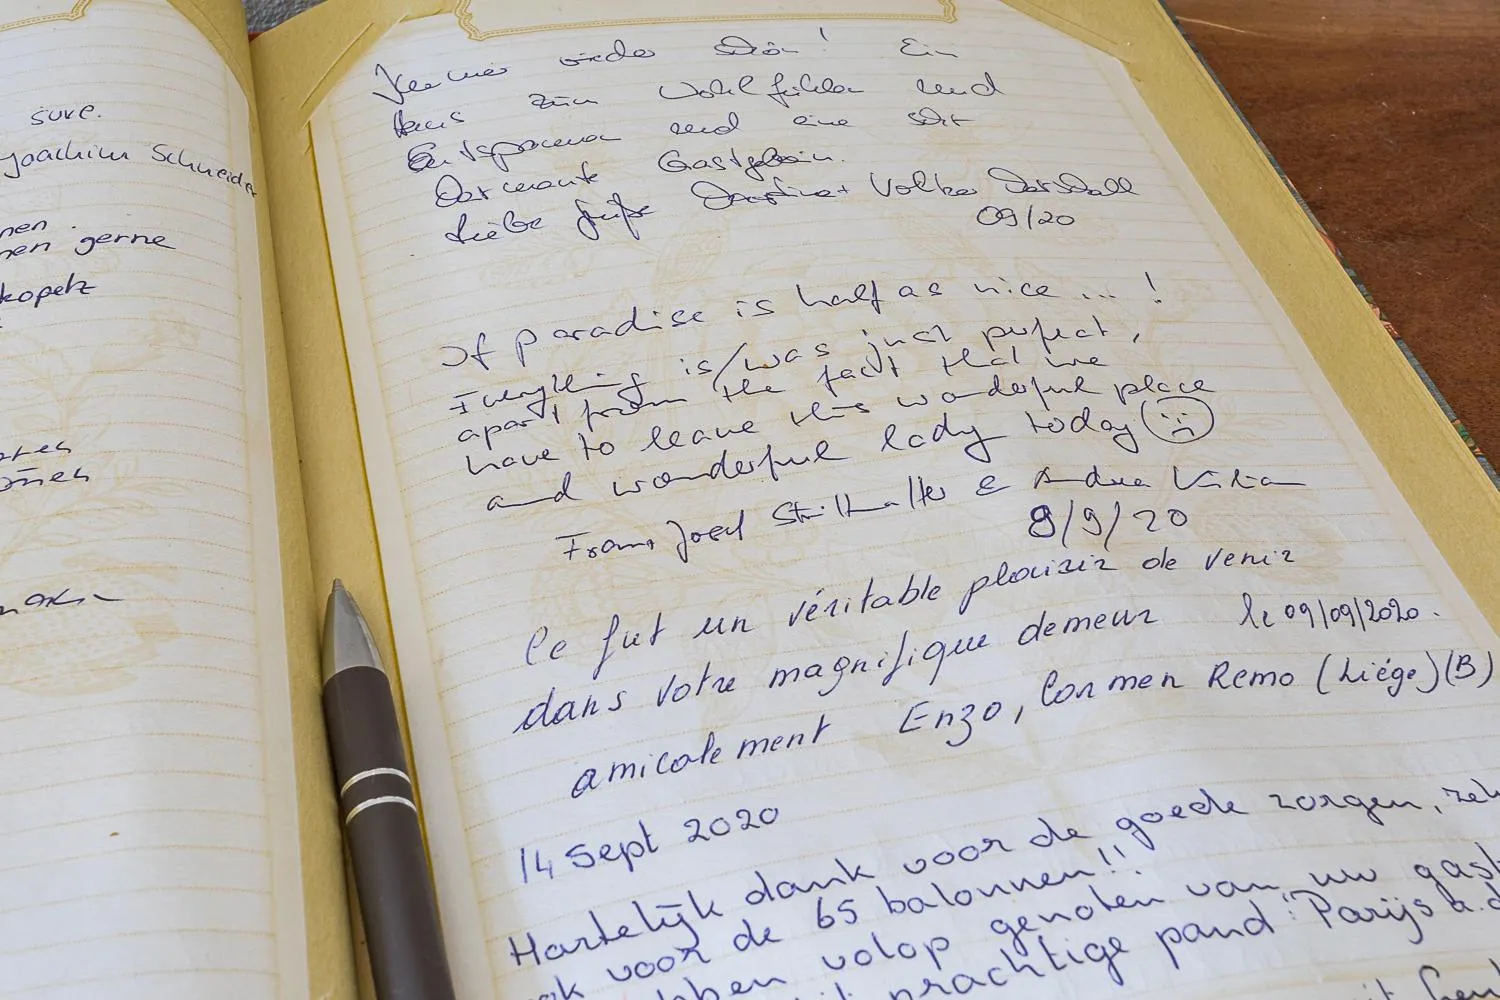 suve.
Joachim Schneider
nen.
nen gerne
kopetz
Immer wieder schön! Ein
Haus zum Wohlfühlen und
Entspannen und eine sehr
charmante Gastgeberin.
Liebe Grüße Volker
09/20
If paradise is half as nice ... !
Everything is/was just perfect,
apart from the fact that we
have to leave this wonderful place
and wonderful lady today
Franz Josef & Andrea
9/9/20
Ce fut un véritable plaisir de venir
dans votre magnifique demeur le 09/09/2020.
amicalement Enzo, Carmen Remo (Liége)(B)
14 Sept 2020
Hartelijk dank voor de goede zorgen,
ook voor de 65 balonnen!!
bben volop genoten van uw gast
prachtige pand "Parijs a.d